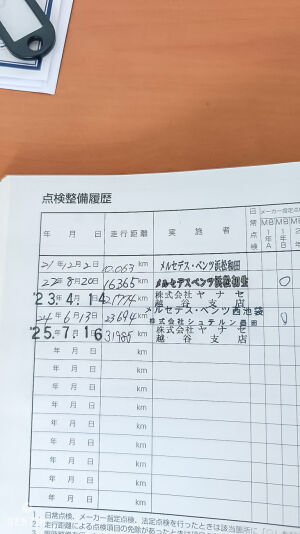 点検整備履歴
年 月 日 走行距離 実施者 日常点検 メーカー指定点
MB 1年A MB 1年B
21年12月2日 10,063km メルセデス・ベンツ浜松和田
22年8月20日 16365km メルセデスベンツ浜松和生 ○
'23.4.14 21774km 株式会社ヤナセ 越谷支店
24年6月13日 23694km メルセデス・ベンツ西池袋 株式会社シュテルン ○
'25.7.16 31985km 株式会社ヤナセ 越谷支店
年 月 日 km
年 月 日 km
年 月 日 km
年 月 日 km
年 月 日 km
年 月 日 km
年 月 日 km
年 月 日 km
年 月 日 km
1. 日常点検、メーカー指定点検、法定点検を行ったときは該当箇所に
2. 走行距離による点検項目の免除があったときは